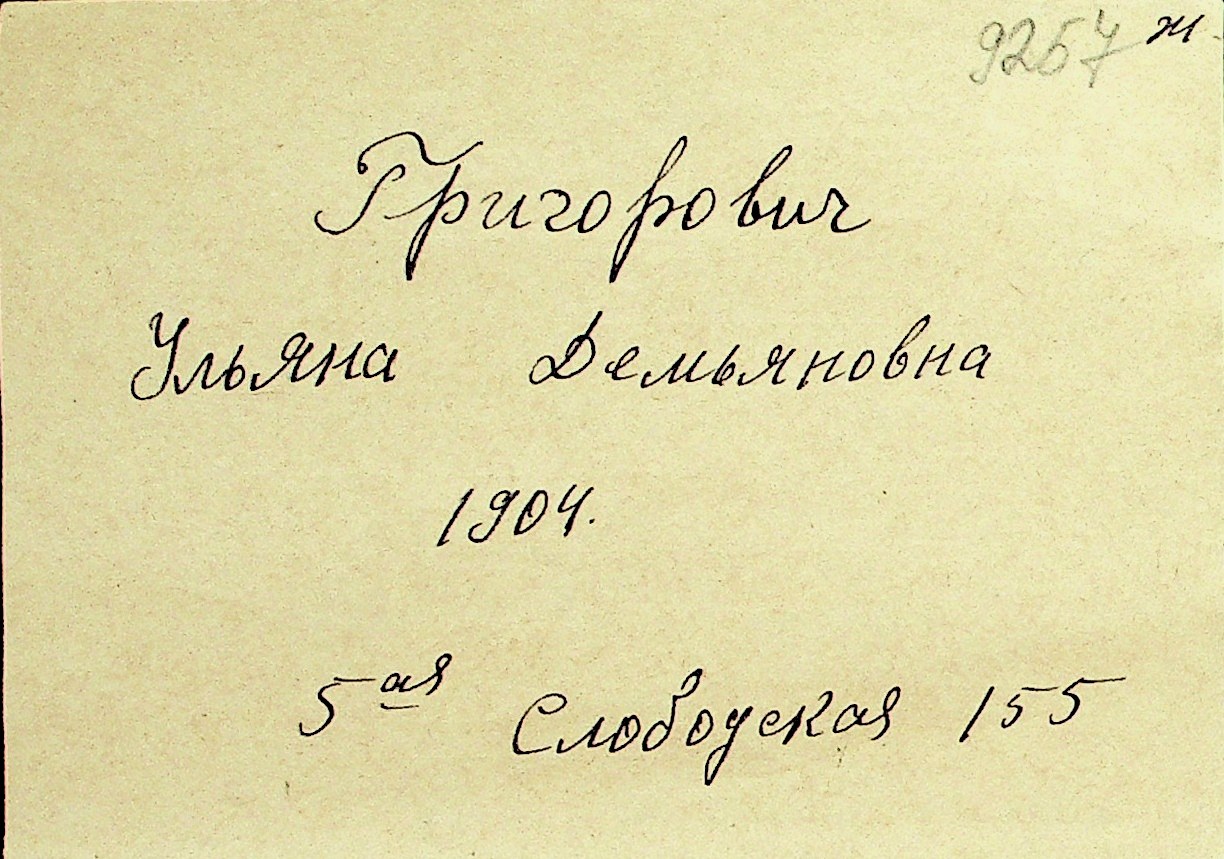 9257 ж
Григорович
Ульяна Демьяновна
1904.
5ая Слободская 155